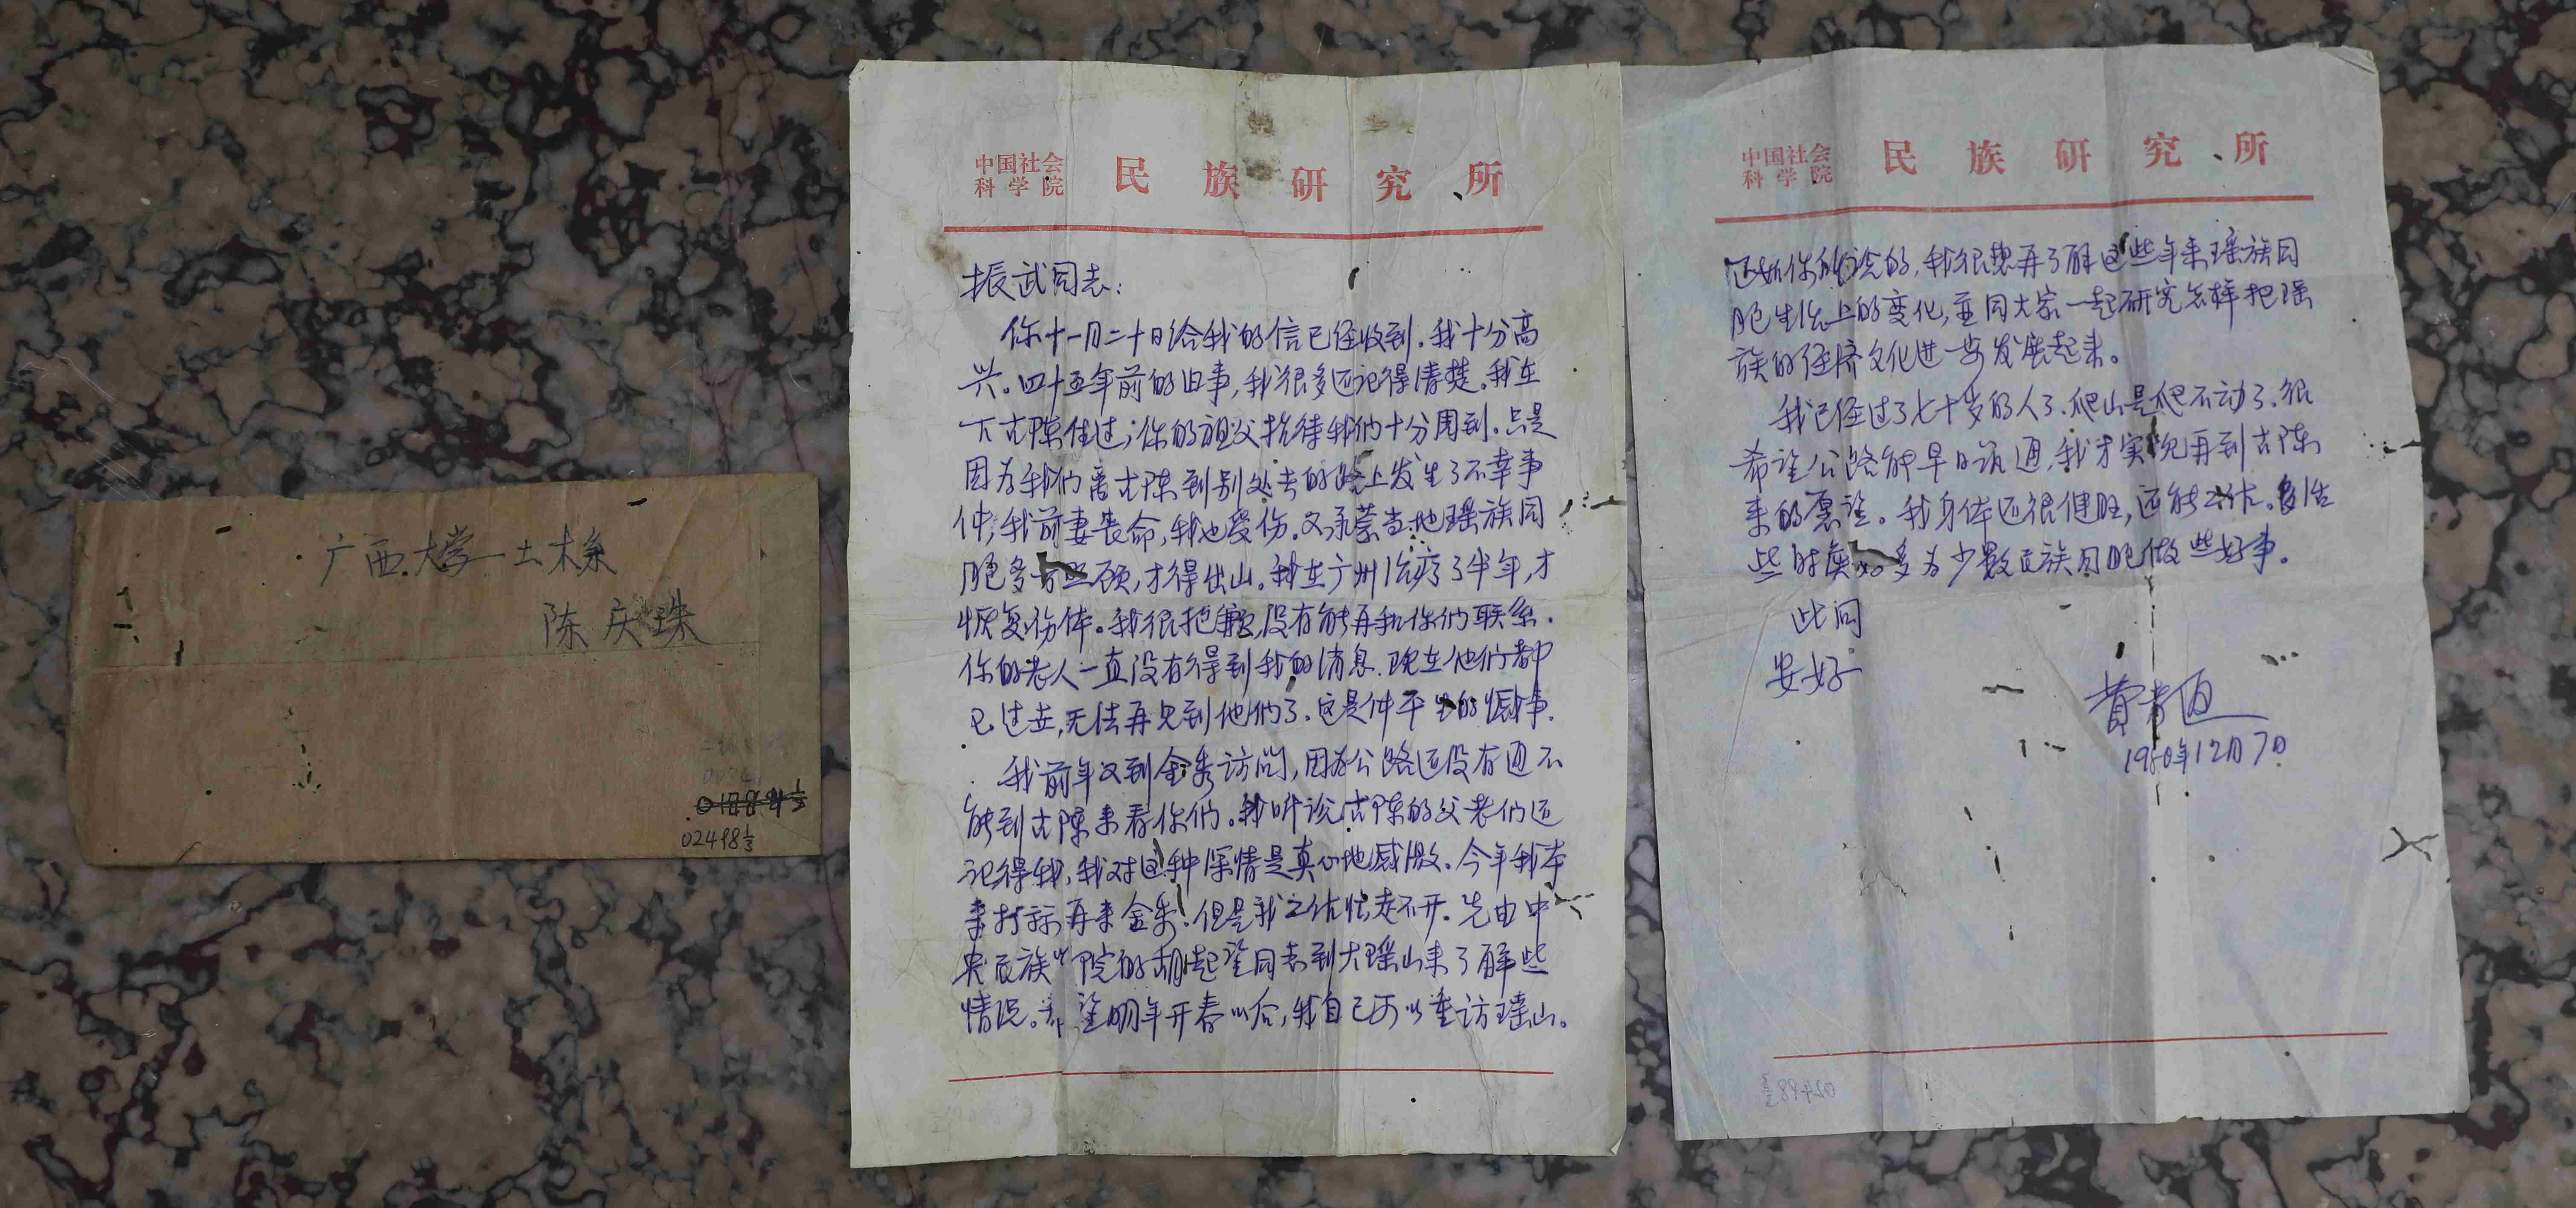 广西大学土木系
陈庆珠
018841/2
02498 1/3
中国社会
科学院
民族研究所
振武同志:
你十一月二十日给我的信已经收到.我十分高
兴。四十五年前的旧事,我很多还记得清楚。我在
下古陈住过;你的祖父招待我们十分周到.只是
因为我们离古陈到别处去的路上发生了不幸事
件,我前妻丧命,我也受伤.又承蒙当地瑶族同
胞多方照顾,才得出山。我在广州治疗了半年,才
恢复伤体。我很抱歉,没有能再和你们联系.
你的老人一直没有得到我的消息.现在他们都
已过去,无法再见到他们了.这是件平生的憾事.
我前年又到金秀访问,因为公路还没有通不
能到古陈来看你们。我听说古陈的父老们还
记得我,我对这种深情是真心地感激.今年我本
来打算再来金秀.但是我工作忙走不开.先由中
央民族学院的胡起望同志到大瑶山来了解些
情况。希望明年开春以后,我自己可以重访瑶山。
中国社会
科学院
民族研究所
正如你所说的,我很想再了解这些年来瑶族同
胞生活上的变化,并同大家一起研究怎样把瑶
族的经济文化进一步发展起来。
我已经过了七十岁的人了.爬山是爬不动了.很
希望公路能早日筑通,我才实现再到古陈
来的愿望。我身体还很健旺,还能工作。多活
些时候,多为少数民族同胞做些好事。
此问
安好
费孝通
1980年12月7日
02498